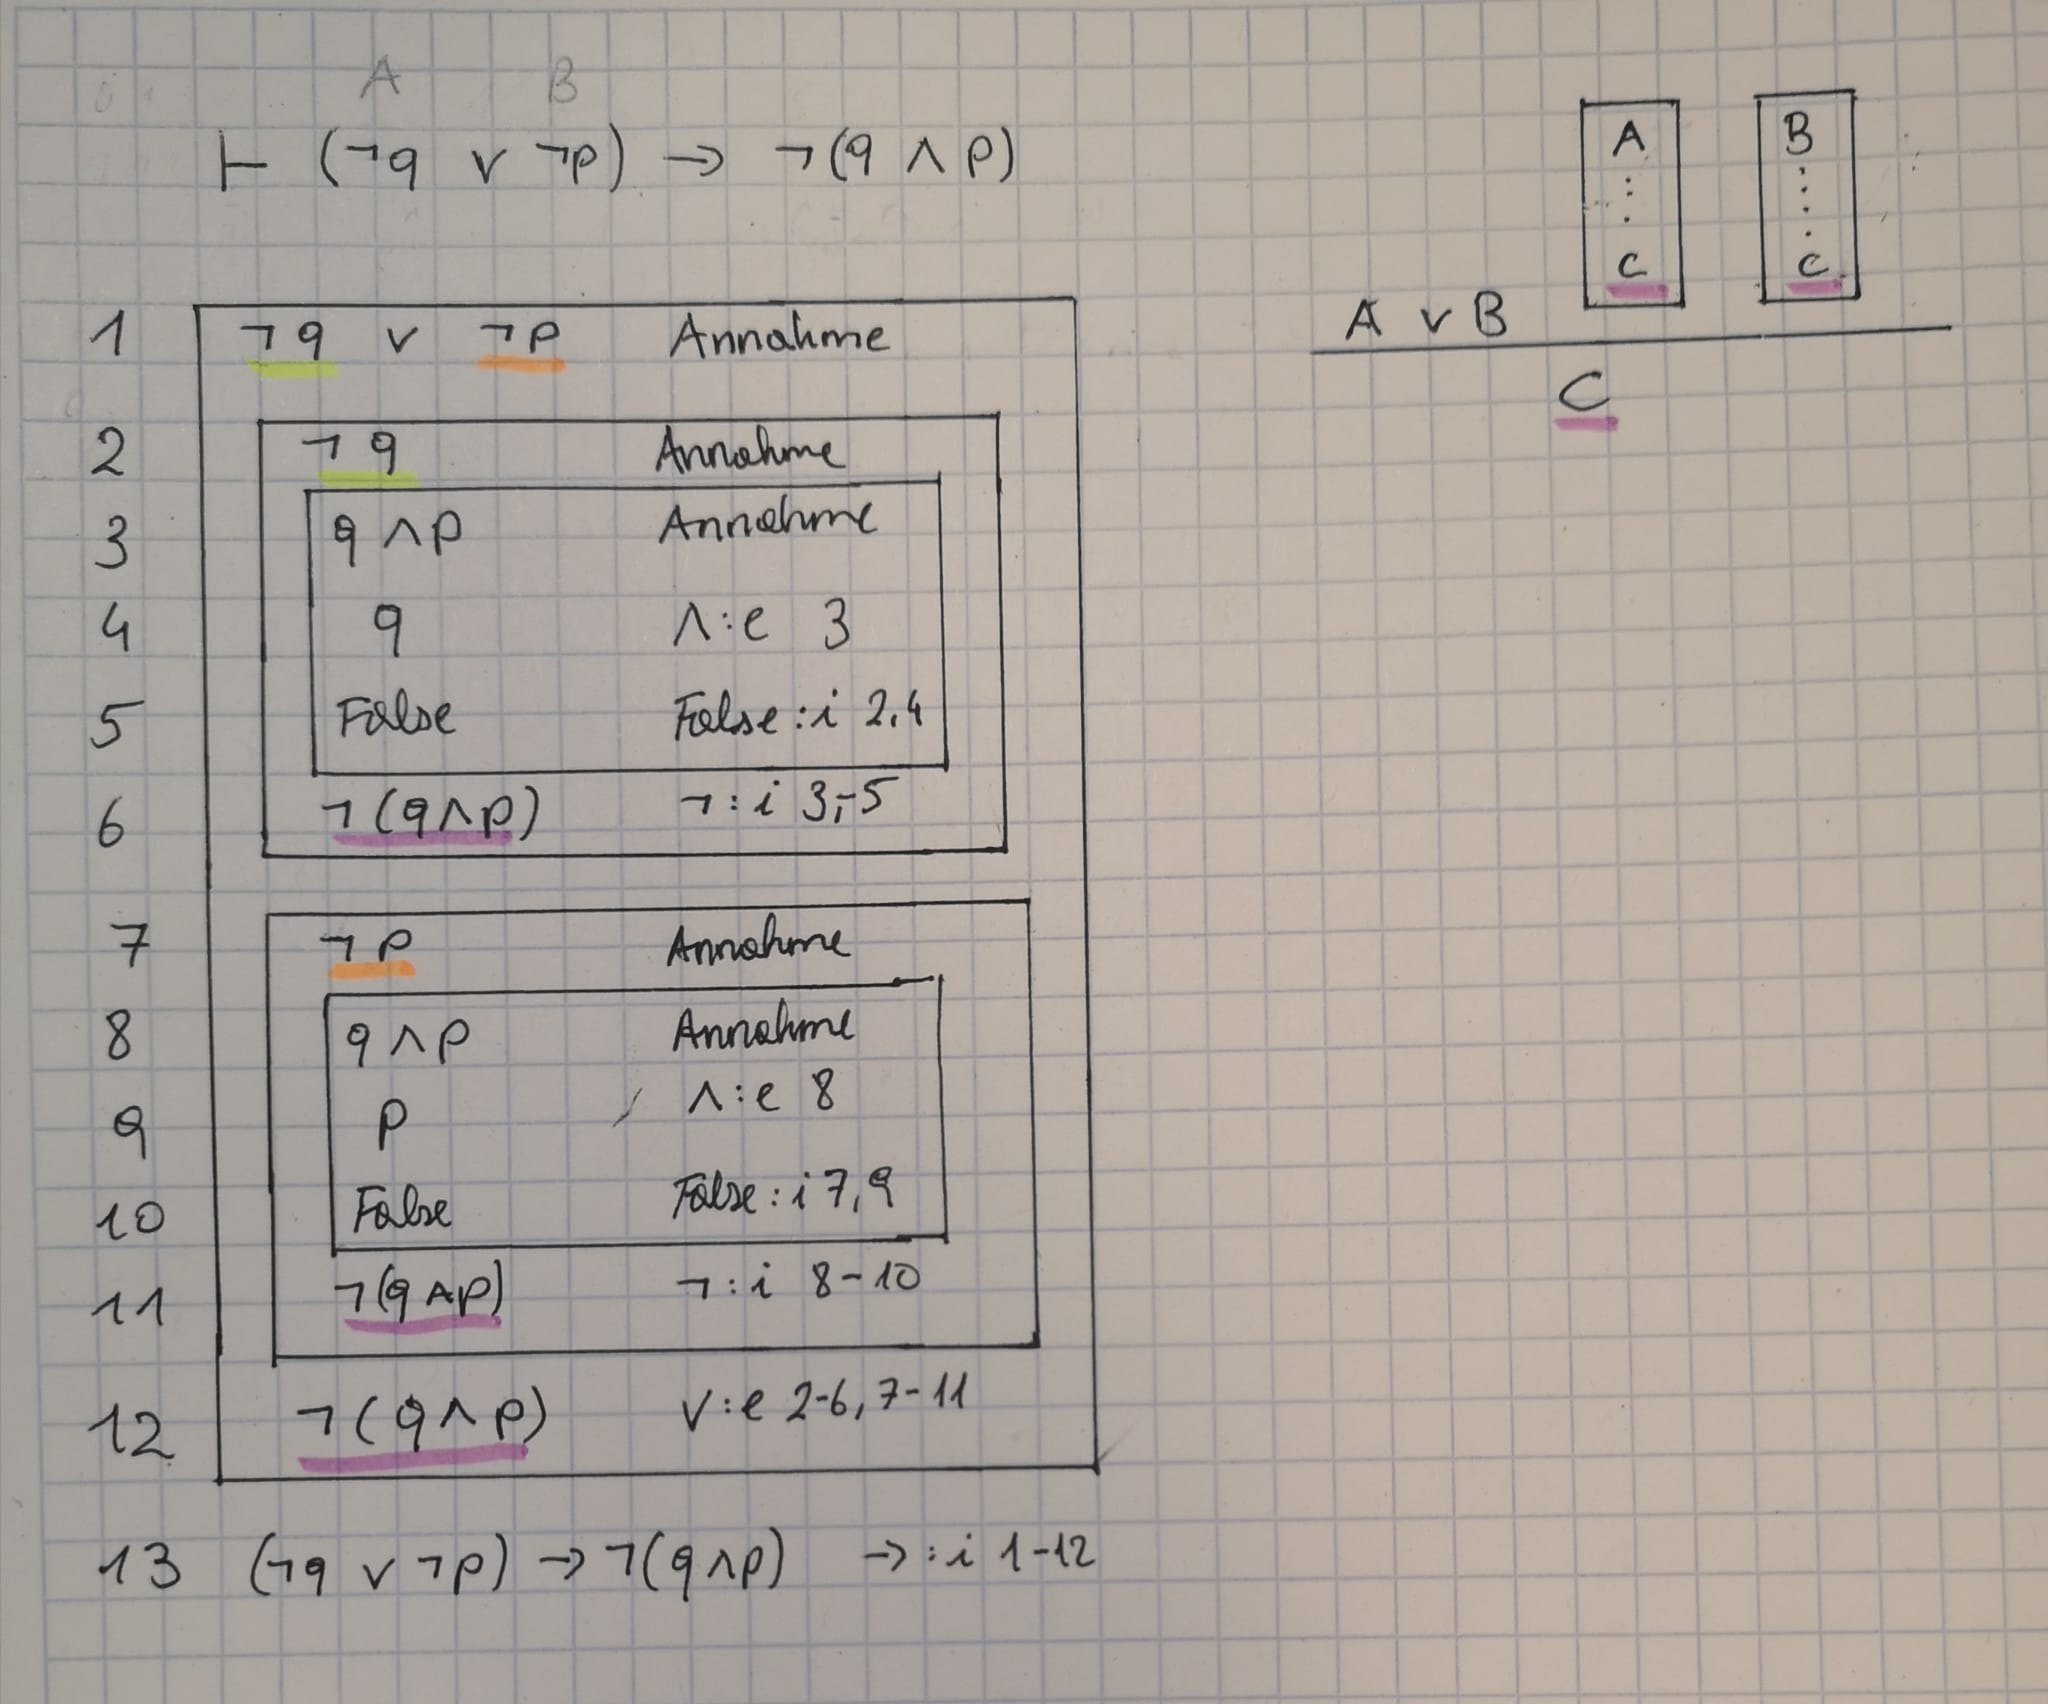 A B
⊢ (¬q ∨ ¬p) → ¬(q ∧ p)
1 ¬q ∨ ¬p Annahme
2 ¬q Annahme
3 q ∧ p Annahme
4 q ∧:e 3
5 False False:i 2,4
6 ¬(q∧p) ¬:i 3-5
7 ¬p Annahme
8 q ∧ p Annahme
9 p ∧:e 8
10 False False:i 7,9
11 ¬(q∧p) ¬:i 8-10
12 ¬(q∧p) ∨:e 2-6, 7-11
13 (¬q ∨ ¬p) → ¬(q∧p) →:i 1-12
A B
⋮ ⋮
C C
A ∨ B
C